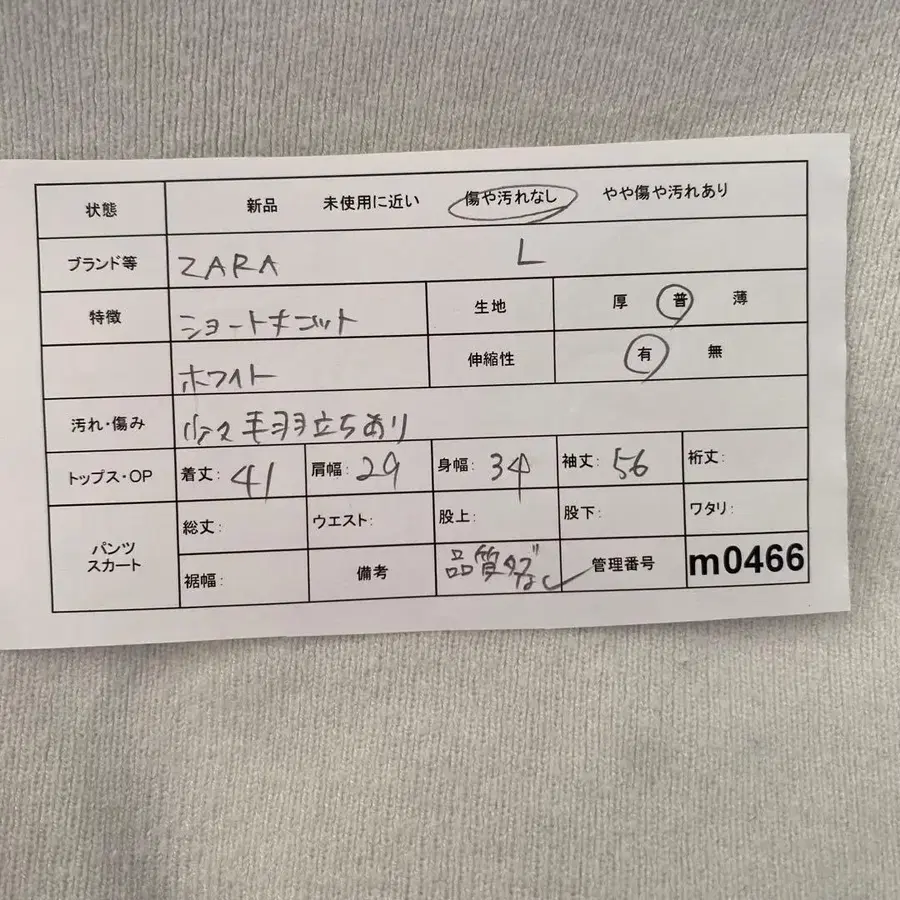 状態 新品 未使用に近い 傷や汚れなし やや傷や汚れあり
ブランド等 ZARA L
特徴 ショート 生地 厚 普 薄
ホワイト 伸縮性 有 無
汚れ・傷み 毛羽立ちあり
トップス・OP 着丈: 41 肩幅: 29 身幅: 34 袖丈: 56 裄丈:
パンツ スカート 総丈: ウエスト: 股上: 股下: ワタリ:
裾幅: 備考 品質タグなし 管理番号 m0466